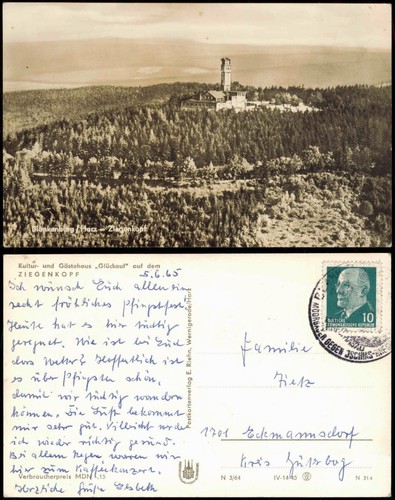 Blankenburg/Harz – Ziegenkopf
Kultur- und Gästehaus „Glückauf" auf dem
ZIEGENKOPF
5.6.65
Ich wünsch Euch allen ein
recht fröhliches Pfingstfest.
Heute hat es hier tüchtig
geregnet. Wie ist bei Euch
das Wetter? Hoffentlich ist
es über Pfingsten schön,
damit wir tüchtig wandern
können. Die Luft bekommt
mir sehr gut. Villeicht werde
ich wieder richtig gesund.
Bei allem Regen waren wir
hier zum Kaffeekonzert.
Herzliche Grüße Elsbeth
Verbraucherpreis MDN -,15
Postkartenverlag E. Riehn, Wernigerode/Harz
N 3/64 IV-14-45
N 314
10
DEUTSCHE
DEMOKRATISCHE REPUBLIK
GEGEN
Familie
Tietz
1701 Eckmannsdorf
Kreis Jüterbog